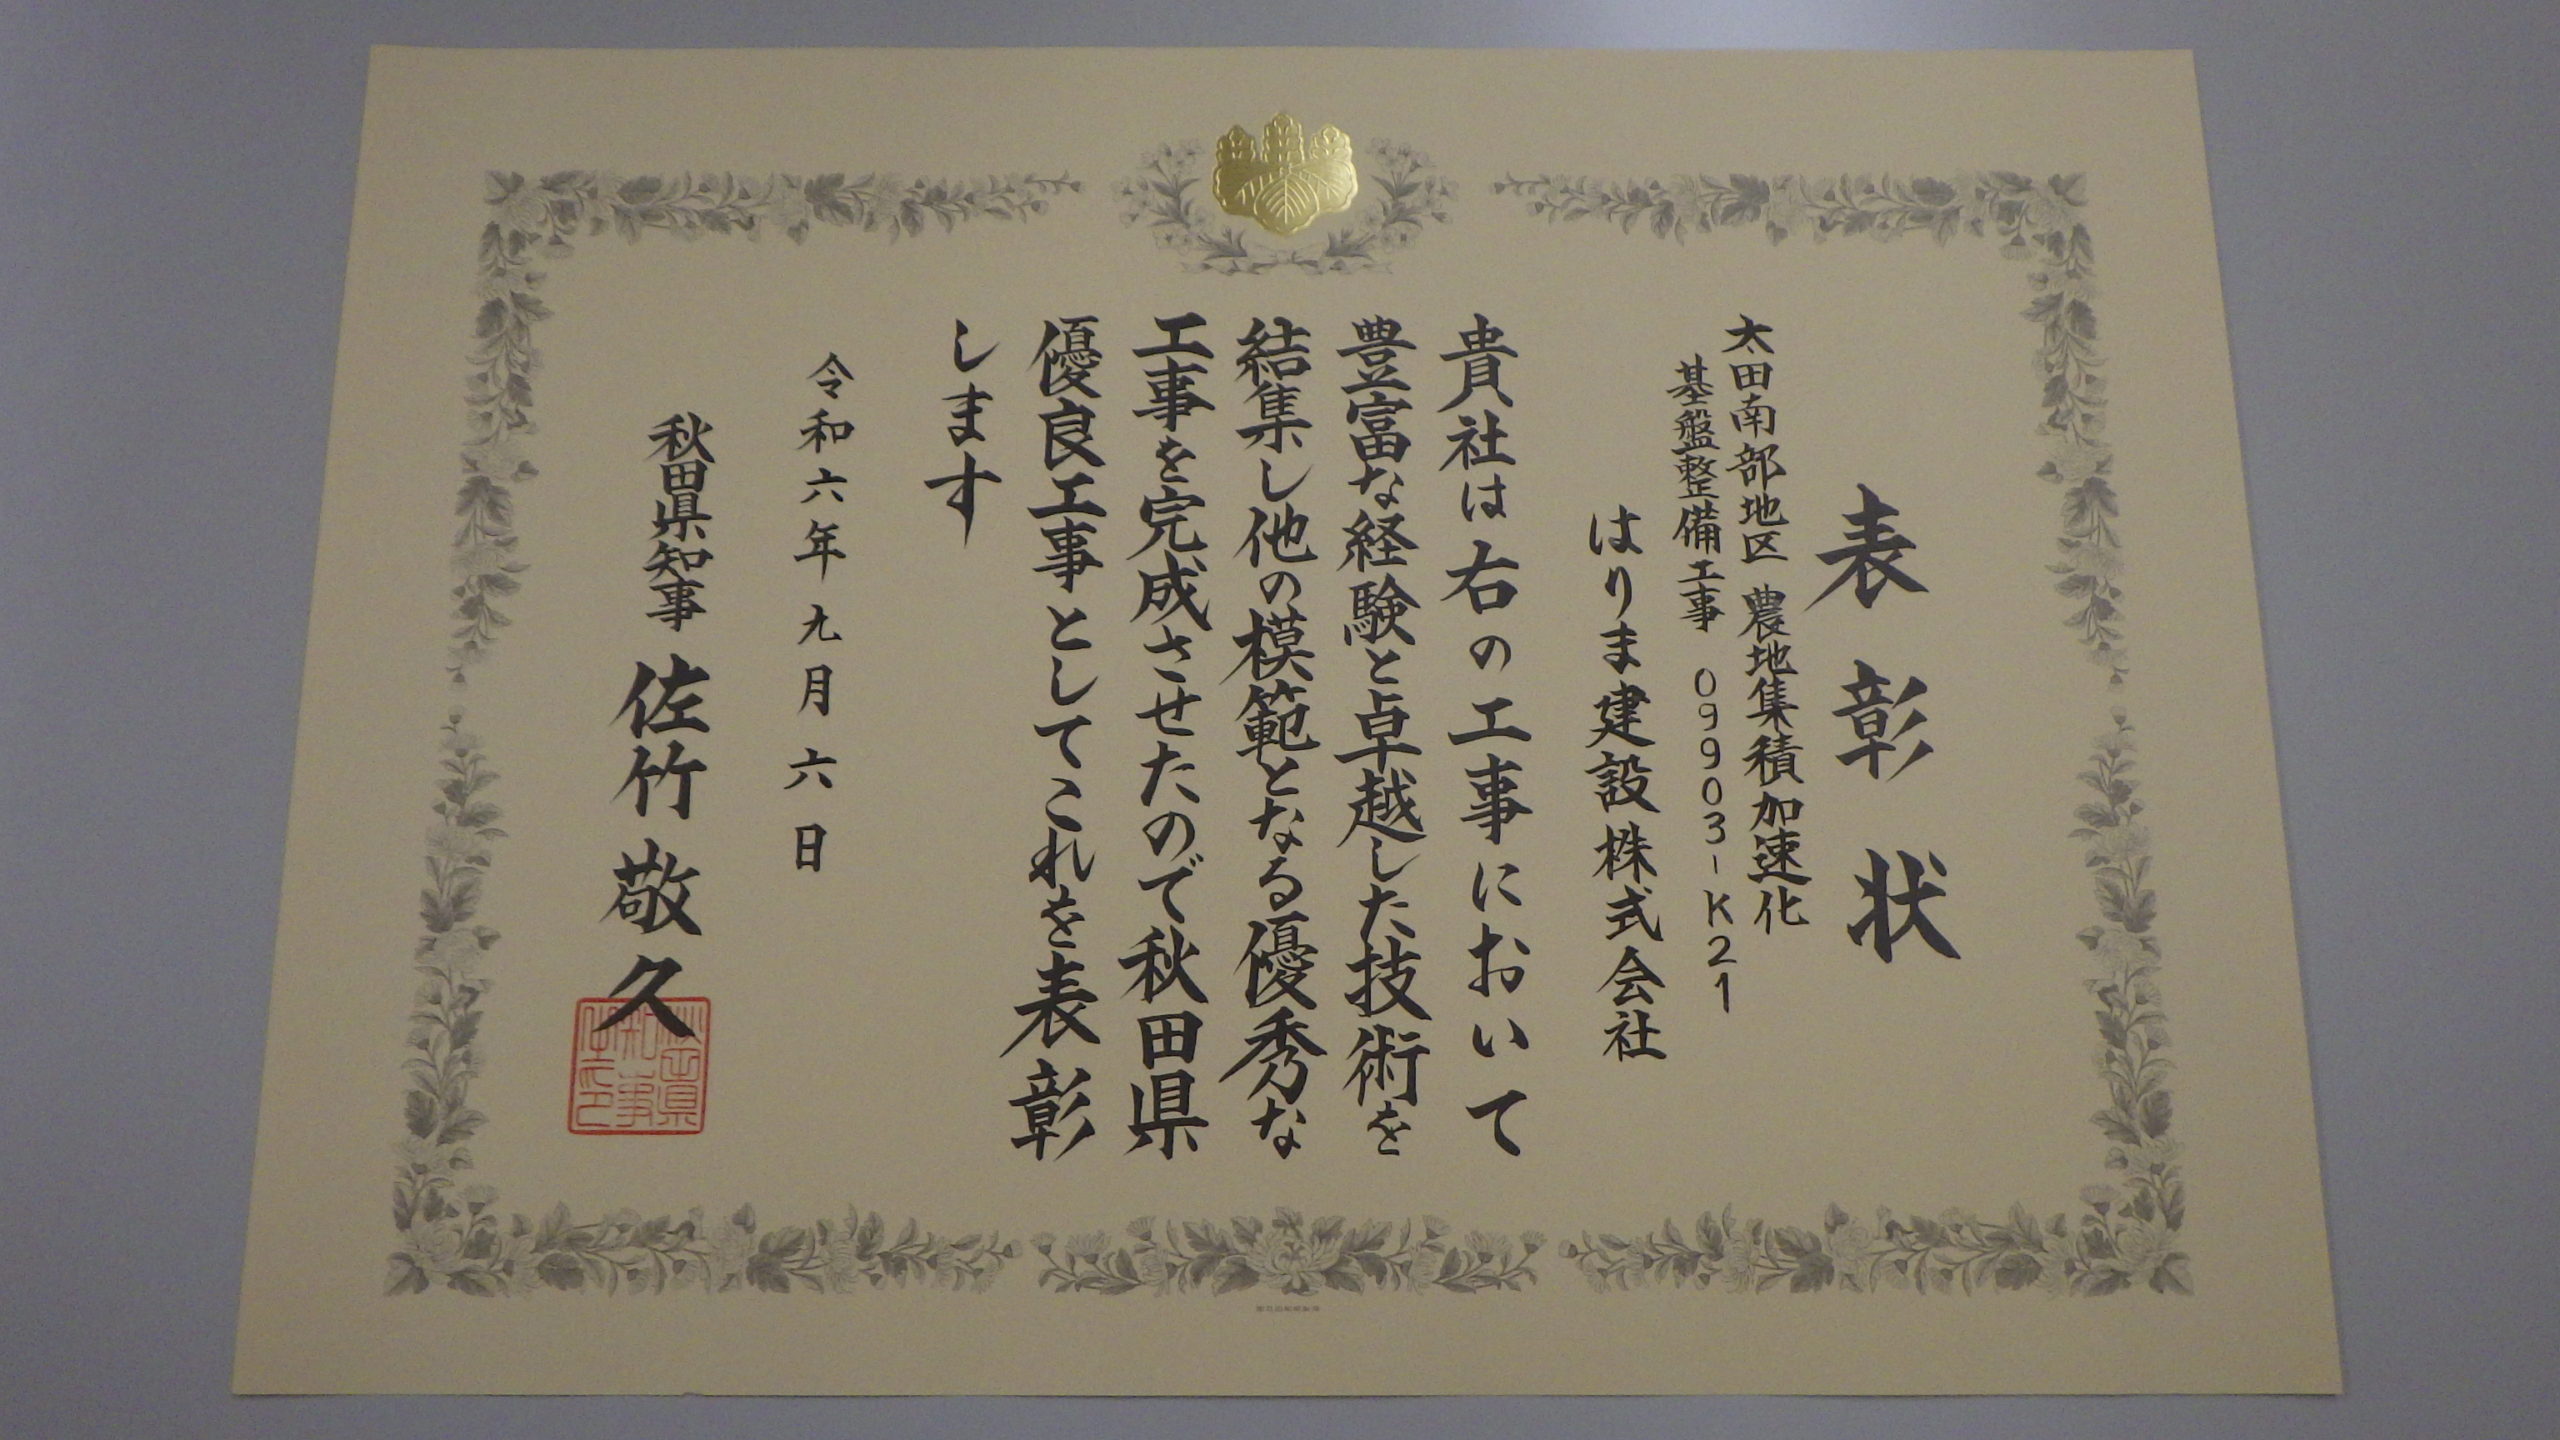 表彰状
太田南部地区 農地集積加速化
基盤整備工事 09903-K21
はりま建設株式会社
貴社は右の工事において
豊富な経験と卓越した技術を
結集し他の模範となる優秀な
工事を完成させたので秋田県
優良工事としてこれを表彰
します
令和六年九月六日
秋田県知事 佐竹敬久